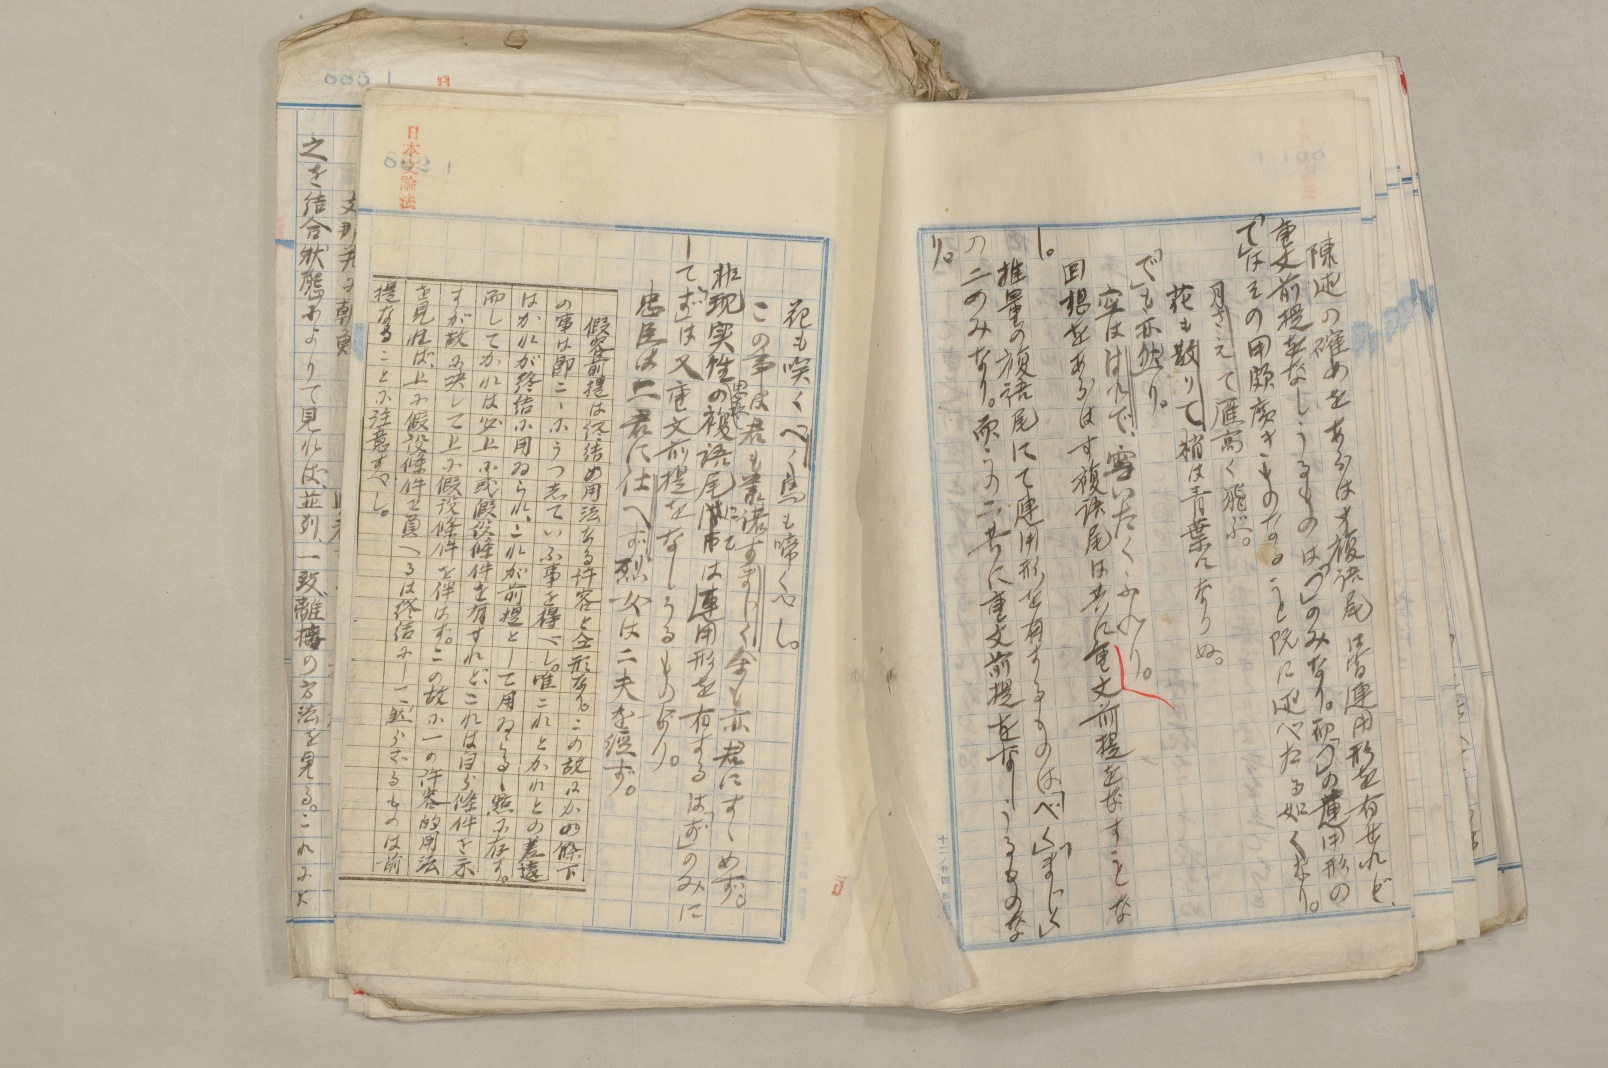 陳述の確めをあらはす複語尾は皆連用形を有せれど、
重文前提をなしうるものは「つ」のみなり。而「つ」の連用形の
「て」はその用頗広きものなること既に述べたる如くなり。
月さえて雁高く飛ぶ。
花も散りて梢は青葉になりぬ。
「で」も亦然り。
空ははれで、雪いたくふれり。
回想をあらはす複語尾は共に重文前提をなすことな
し。
推量の複語尾にて連用形を有するものは「べく」「まじく」
の二のみなり。而、この二共に重文前提をなしうるものな
り。
花も咲くべく鳥も啼くべし。
この事は君も承諾すまじく余も亦君にすゝめず。
非現実性の思想の複語尾にては連用形を有するは「ず」のみに
して「ず」は又重文前提をなしうるものなり。
忠臣は二君に仕へず、烈女は二夫を経ず。
假容前提は終結め用法なる許容と全形なり。この故にかの條下
の事は即ここにうつしていふ事を得べし。唯これとかれとの差違
はかれが終結に用ゐられ、これが前提として用ゐらるゝ點に存す。
而してかれは必上に或假設條件を有すれど、これは自ら條件を示
すが故に決して上に假設條件を伴はず。この故に一の許容的用法
を見れば、上に假設條件を負へるは終結にして然らざるものは前
提なることに注意すべし。
日本文論法
之を結合状態によりて見れば、並列、一致、離接の方法を見る。これによ